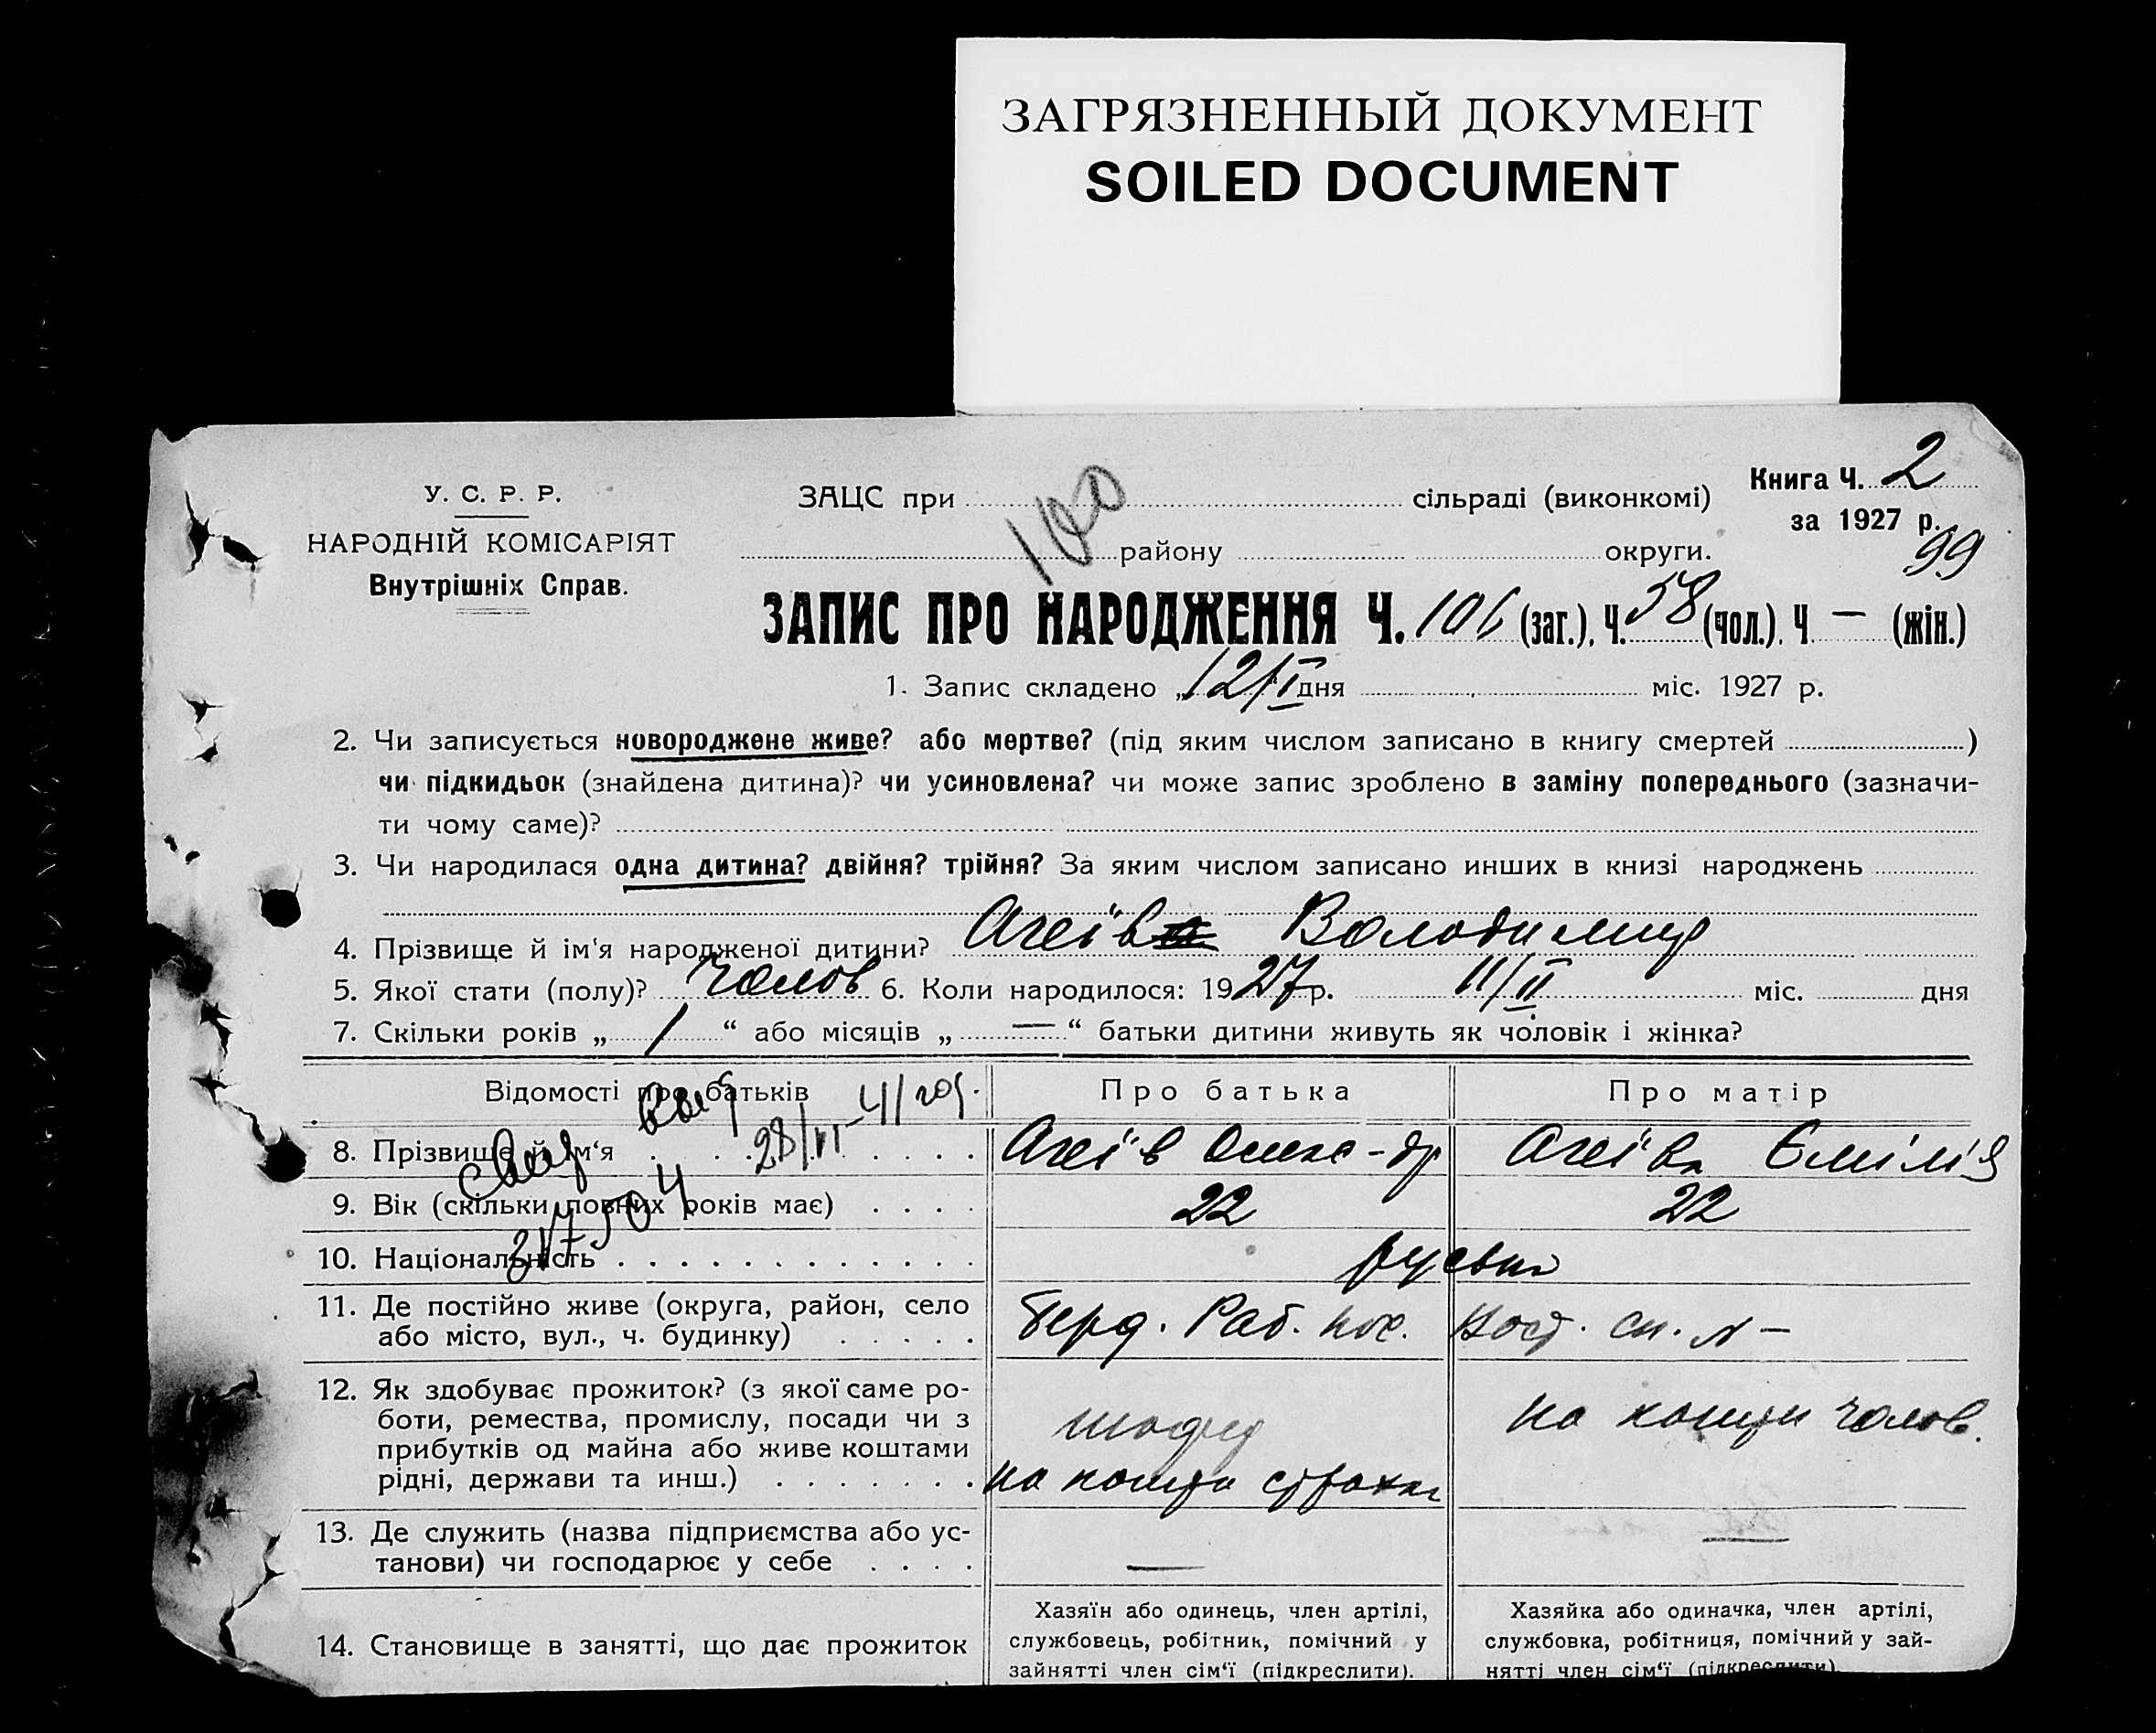 ЗАГРЯЗНЕННЫЙ ДОКУМЕНТ
SOILED DOCUMENT
У. С. Р. Р.
НАРОДНІЙ КОМІСАРІЯТ
Внутрішніх Справ.
100
ЗАЦС при сільраді (виконкомі)
району округи.
Книга Ч. 2
за 1927 р.
99
ЗАПИС ПРО НАРОДЖЕННЯ Ч. 106 (заг.), Ч. 58 (чол.). Ч — (жін.)
1. Запис складено „12/II дня міс. 1927 р.
2. Чи записується новороджене живе? або мертве? (під яким числом записано в книгу смертей )
чи підкидьок (знайдена дитина)? чи усиновлена? чи може запис зроблено в заміну попереднього (зазначи-
ти чому саме)?
3. Чи народилася одна дитина? двійня? трійня? За яким числом записано инших в книзі народжень
4. Прізвище й ім'я народженої дитини? Агеїв Володимир
5. Якої стати (полу)? Чолов 6. Коли народилося: 1927 р. 11/II міс. дня
7. Скільки років „ 1 “ або місяців „ — “ батьки дитини живуть як чоловік і жінка?
Відомості про батьків Про батька Про матір
28/VI-41 год.
8. Прізвище й ім'я Агеїв Олекс-др Агеїва Емілія
9. Вік (скільки повних років має) 22 22
10. Національність руськи
11. Де постійно живе (округа, район, село
або місто, вул., ч. будинку) Берд. Раб. пос.
12. Як здобуває прожиток? (з якої саме ро-
боти, ремества, промислу, посади чи з
прибутків од майна або живе коштами
рідні, держави та инш.)
шофер
на кошти страхк
на кошти чолов.
13. Де служить (назва підприємства або ус-
танови) чи господарює у себе — —
14. Становище в занятті, що дає прожиток
Хазяїн або одинець, член артілі,
службовець, робітник, помічний у
зайнятті член сім'ї (підкреслити).
Хазяйка або одиначка, член артілі,
службовка, робітниця, помічний у зай-
нятті член сім'ї (підкреслити).